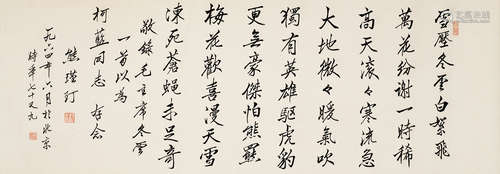 雪壓冬雲白絮飛
萬花紛謝一時稀
高天滾々寒流急
大地微々暖氣吹
獨有英雄驅虎豹
更無豪傑怕熊羆
梅花歡喜漫天雪
凍死蒼蠅未足奇
敬錄毛主席冬雲
一首以為
柯藍同志 存念
熊瑾玎
一九六四年六月於北京
時年七十又九